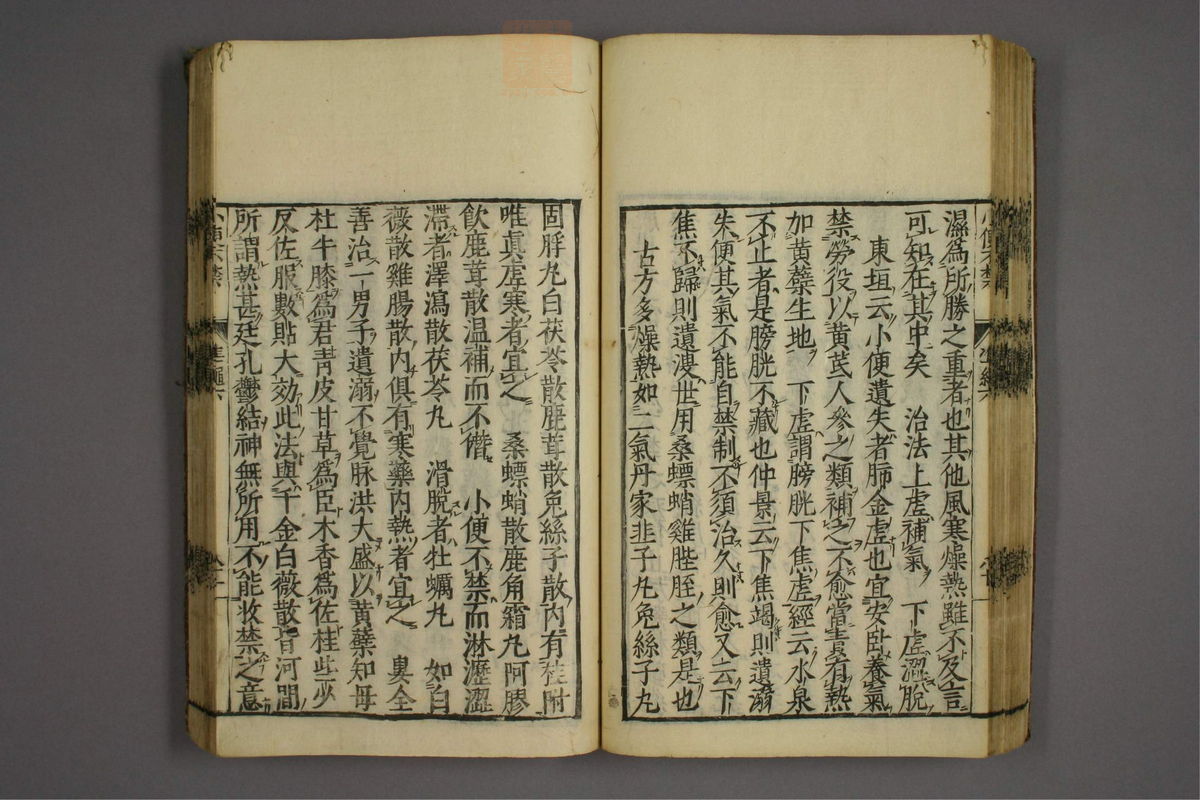 濕為所勝之重者也其他風寒燥熱雖不及言
可知在其中矣　治法上虛補氣　下虛澀脫
東垣云小便遺失者肺金虛也宜安臥養氣
禁勞役以黃芪人參之類補之不愈當責有熱
加黃蘗生地　下虛謂膀胱下焦虛經云水泉
不止者是膀胱不藏也仲景云下焦竭則遺溺
失便其氣不能自禁制不須治久則愈又云下
焦不歸則遺溲世用桑螵蛸雞䏶胵之類是也
古方多燥熱如二氣丹家韭子丸兔絲子丸
固脬丸白茯苓散鹿茸散兔絲子散內有桂附
唯真虛寒者宜之　桑螵蛸散鹿角霜丸阿膠
飲鹿茸散溫補而不僭　小便不禁而淋瀝澀
滯者澤瀉散茯苓丸　滑脫者牡蠣丸　如白
薇散雞腸散內俱有寒藥內熱者宜之　婁全
善治一男子遺溺不覺脉洪大盛以黃蘗知母
杜牛膝為君青皮甘草為臣木香為佐桂些少
反佐服數貼大効此法與千金白薇散皆河間
所謂熱甚廷孔鬱結神無所用不能收禁之意
小便不禁